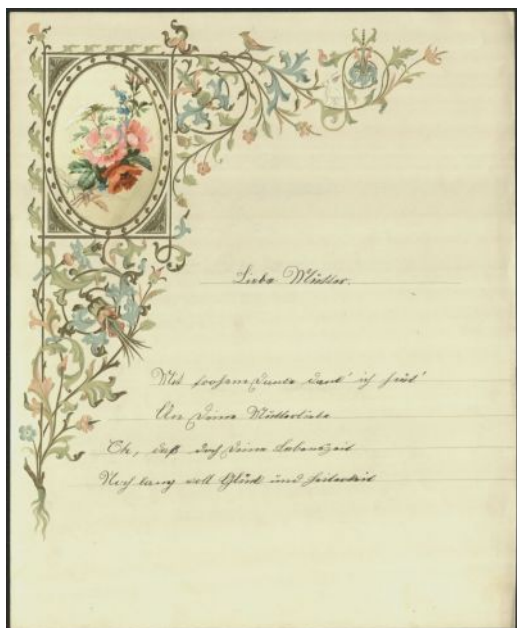 Liebe Mutter.
Mit frohem Danke denk' ich heut'
An Deine Mutterliebe
Oh, daß doch Deine Lebenszeit
Noch lang voll Glück und Heiterkeit